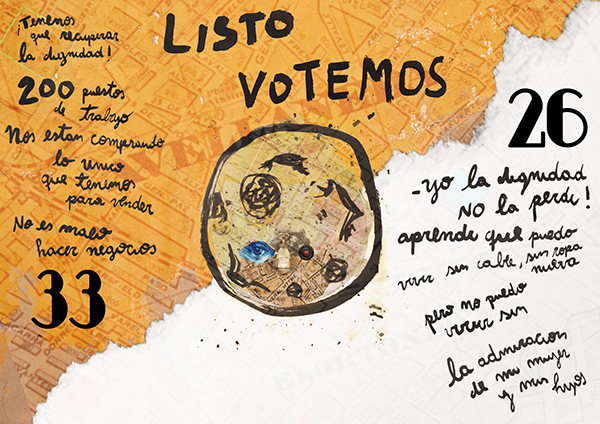 LISTO
VOTEMOS
¡Tenemos
que recuperar
la dignidad!
200 puestos
de trabajo
Nos estan comprando
lo unico
que tenemos
para vender
No es malo
hacer negocios
33
26
-yo la dignidad
NO la perdi!
aprende que puedo
vivir sin cable, sin ropa
nueva
pero no puedo
vivir sin
la admiracion
de mi mujer
y mis hijos